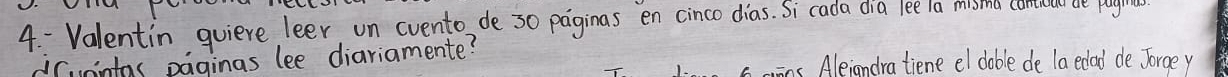 4.- Valentín quiere leer un cuento de 30 páginas en cinco días. Si cada día lee la misma cantidad de páginas.
¿Cuántas páginas lee diariamente?
años Alejandra tiene el doble de la edad de Jorge y